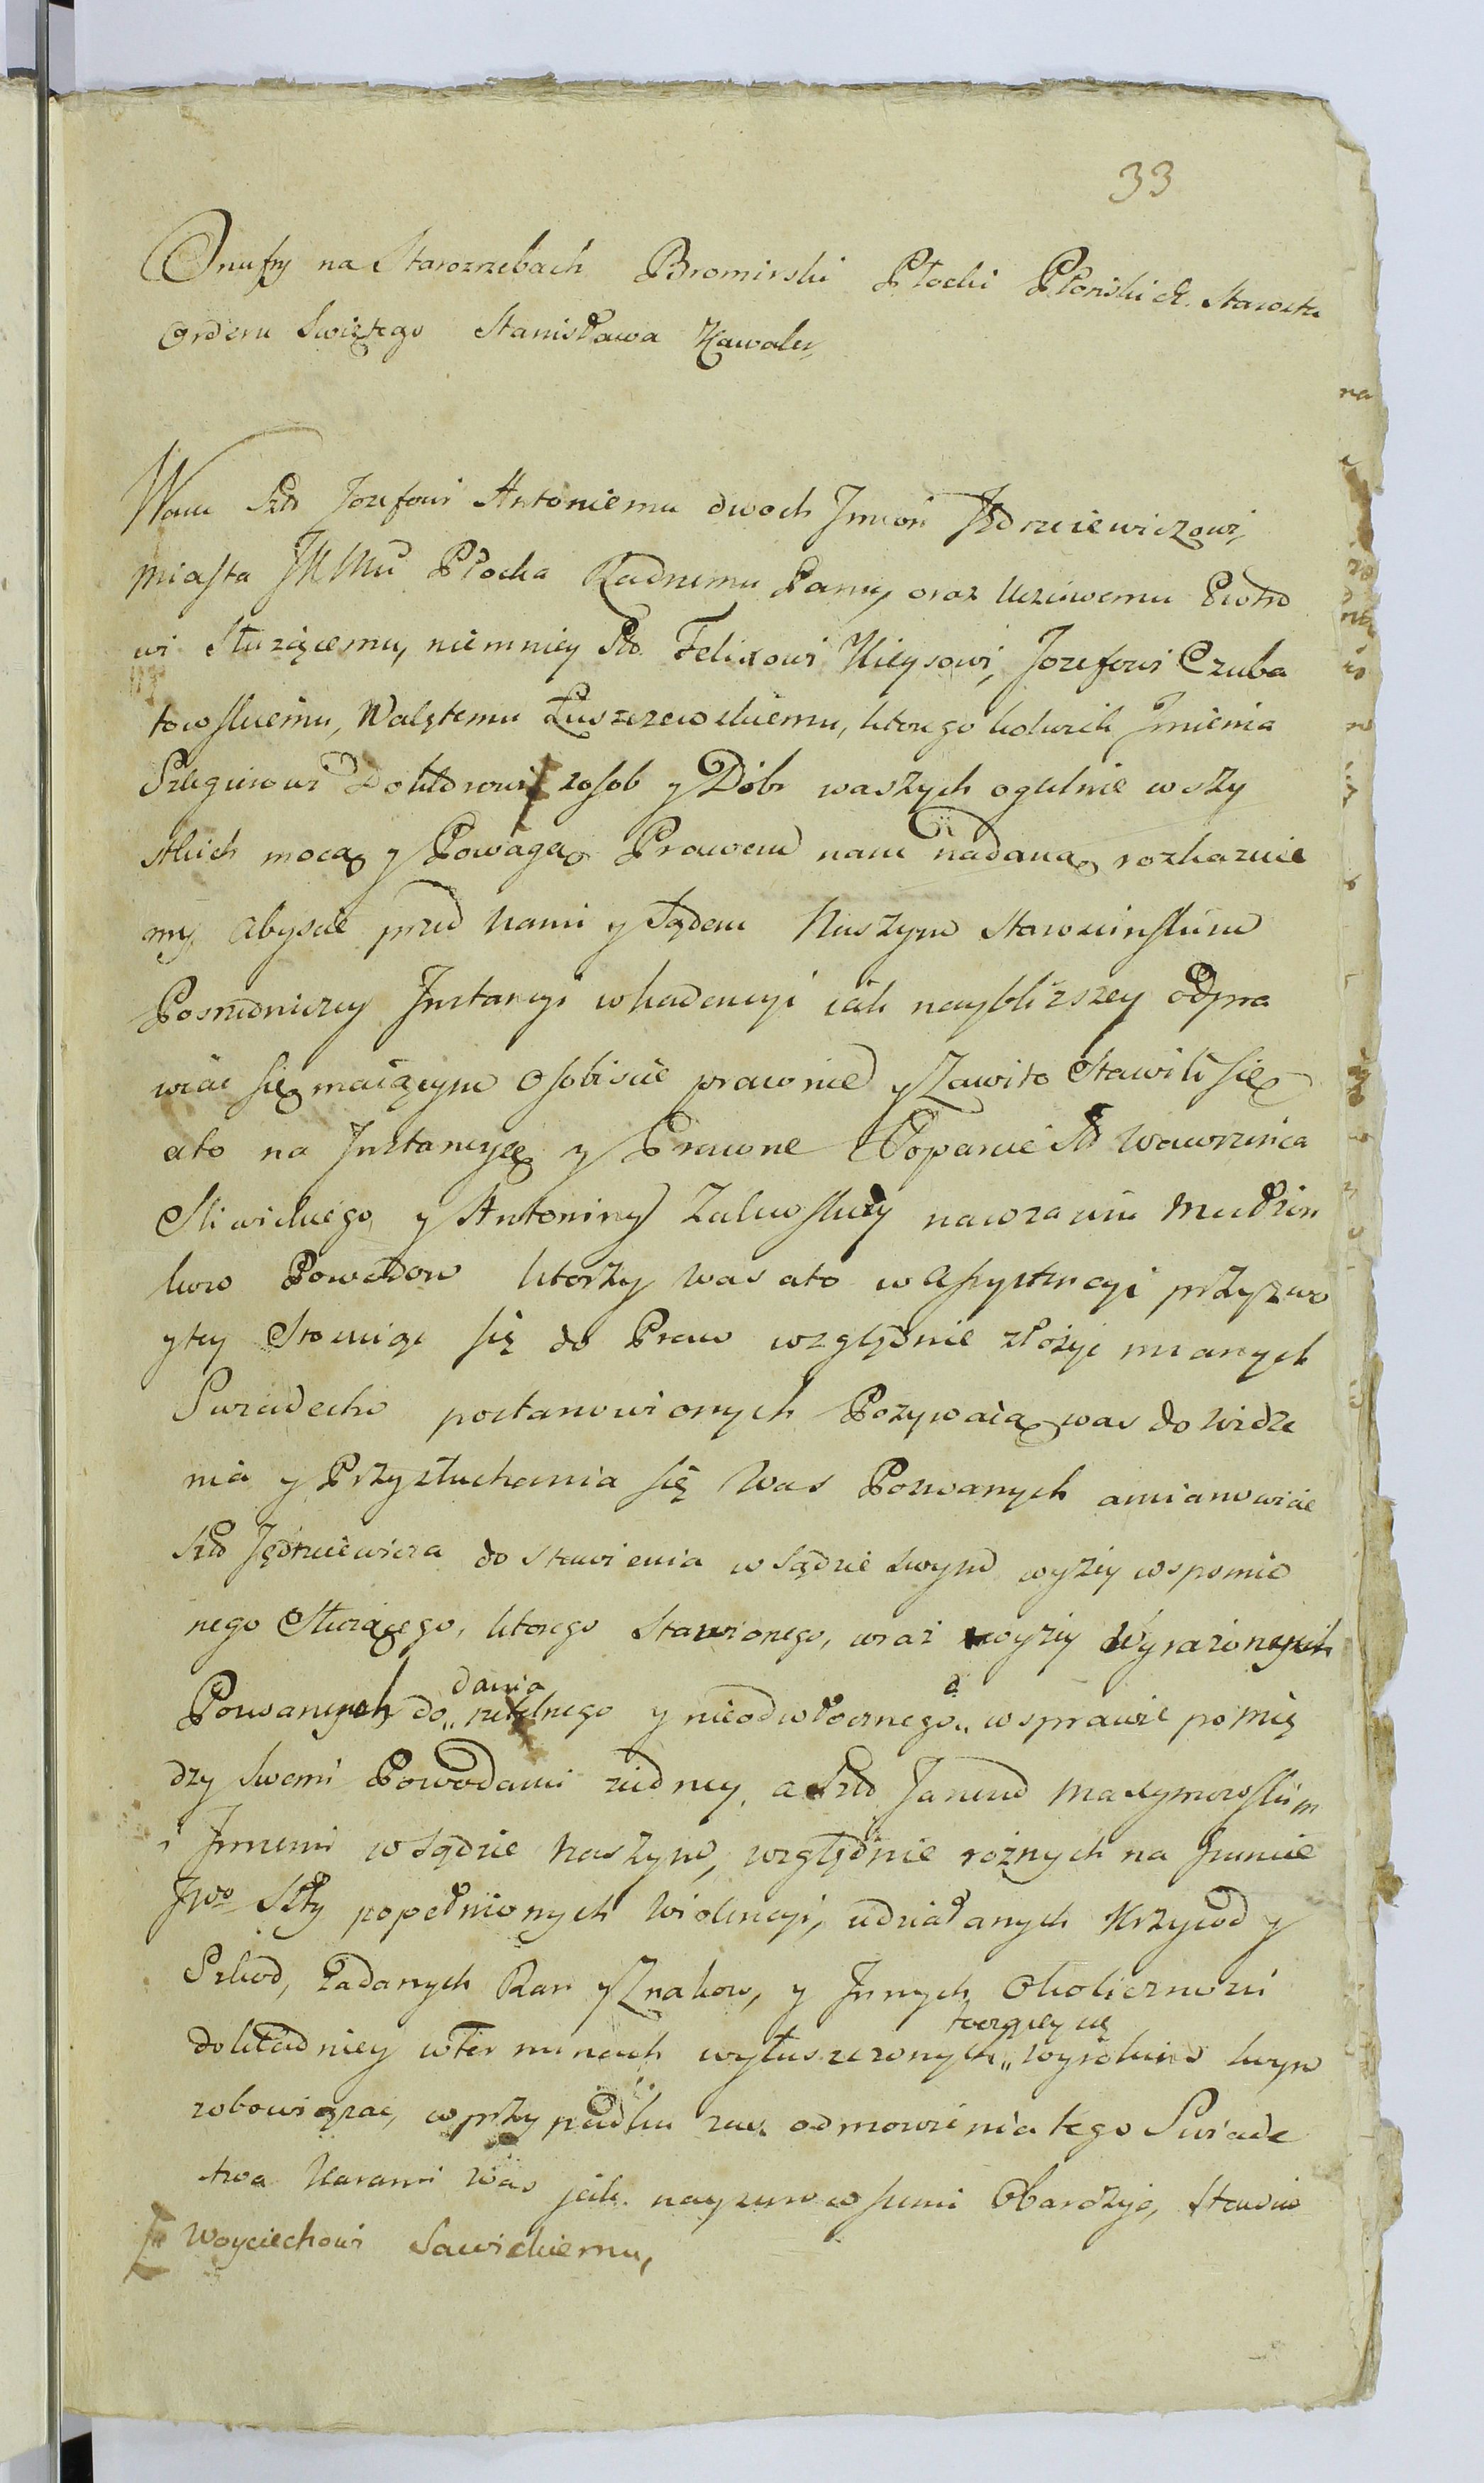 33
Onufry na Starozrebach Bromirski Płocki Płoński &. Starosta
Orderu Swiętego Stanisława Kawaler,
Wam Szło Jozefowi Antoniemu dwoch Jmion Jędrzeiewiczowi,
miasta JKMci Płocka Radnemu Panu, oraz Uczciwemu Piotro
wi Służącemu, niemniey Szło Felixowi Kicysowi, Jozefowi Czuba
towskiemu, Walętemu Łuszczewskiemu, ktorego kolwiek Jmienia
Szleguiowi Doktorowi zosob y Dóbr waszych ogulnie wszy
stkich mocą y Powagą Prawem nam nadaną rozkazuie
my, abyscie przed Nami y Sądem Naszym Starościnskim
Posredniczey Jnstancyi w kadencyi iak nayblizszey odpra
wiac się maiącym osobiscie prawnie y Zawito Stawili się
ato na Jnstancyę y Prawne Popanie Szło Wawrzenca
Sliwickiego y Antoniny Zalewskiey nawzaiem Małżon
kow Powodow ktorzy was ato w Assystencyi przyzwo
ytey Stawiąc się do Praw względnie złożyc mianych
Swiadectw postanowionych Pozywaią was do widze
nia y Przysłuchania się Was Pozwanych amianowicie
Szło Jędrzeiewicza do stawienia w Sądzie swym wyżey wspomnio
nego Służącego, ktorego stawionego, wraz wyżey Wyrażonych
Pozwanych do „dania rzetelnego y nieodwłocznego„ w sprawie pomię
dzy swemi Powodami ziedney, a Szło Janem Maxymowskim
i Jnnemi w Sądzie Naszym, względnie rożnych na Gruncie
popełnionych Wiolencyi, udziałanych Krzywd y
Szkod, Zadanych Ran y Znakow, y Jnnych Okolicznosci
dokładniey w Terminach wyłuszczonych„ toczącey się wyrokiem swym
zobowiązac, w przypadku zaś odmowienia tego Swiade
ctwa Karami Was jak naysurowszemi Obarczyc, Stawcie
Woyciechowi Sawickiemu,